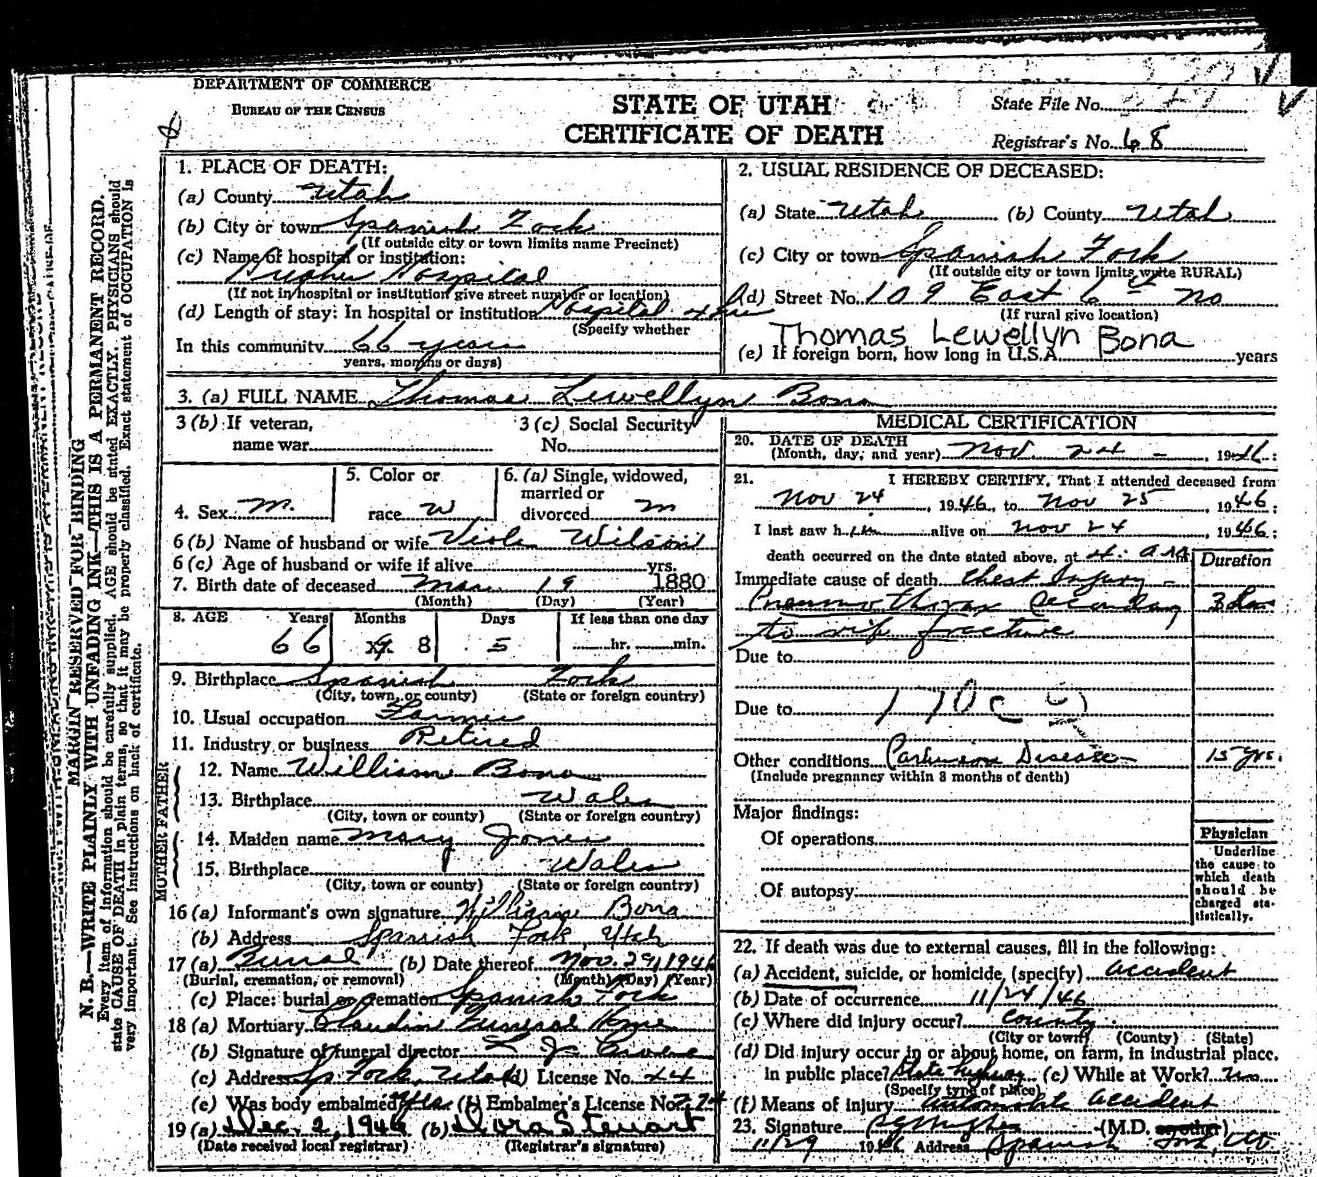 DEPARTMENT OF COMMERCE
BUREAU OF THE CENSUS
STATE OF UTAH
CERTIFICATE OF DEATH
State File No.
Registrar's No. 68
MARGIN RESERVED FOR BINDING
N. B.—WRITE PLAINLY WITH UNFADING INK—THIS IS A PERMANENT RECORD.
Every item of information should be carefully supplied. AGE should be stated EXACTLY. PHYSICIANS should
state CAUSE OF DEATH in plain terms, so that it may be properly classified. Exact statement of OCCUPATION is
very important. See instructions on back of certificate.
1. PLACE OF DEATH:
(a) County Utah
(b) City or town Spanish Fork
(If outside city or town limits name Precinct)
(c) Name of hospital or institution:
Hughes Hospital
(If not in hospital or institution give street number or location)
(d) Length of stay: In hospital or institution Hospital 4 hrs
(Specify whether
In this community 66 years
years, months or days)
2. USUAL RESIDENCE OF DECEASED:
(a) State Utah (b) County Utah
(c) City or town Spanish Fork
(If outside city or town limits write RURAL)
(d) Street No. 109 East 6th No
(If rural give location)
Thomas Lewellyn Bona
(e) If foreign born, how long in U.S.A. years
3. (a) FULL NAME Thomas Lewellyn Bona
3 (b) If veteran,
name war
3 (c) Social Security
No.
4. Sex M.
5. Color or
race W
6. (a) Single, widowed,
married or
divorced M
6 (b) Name of husband or wife Viola Wilson
6 (c) Age of husband or wife if alive yrs.
7. Birth date of deceased Mar. 19 1880
(Month) (Day) (Year)
8. AGE Years Months Days If less than one day
66 8 5 hr. min.
9. Birthplace Spanish Fork
(City, town, or county) (State or foreign country)
10. Usual occupation Farmer
11. Industry or business Retired
FATHER
12. Name William Bona
13. Birthplace Wales
(City, town or county) (State or foreign country)
MOTHER
14. Maiden name Mary Jones
15. Birthplace Wales
(City, town or county) (State or foreign country)
16 (a) Informant's own signature William Bona
(b) Address Spanish Fork, Utah
17 (a) Burial (b) Date thereof Nov. 29, 1946
(Burial, cremation, or removal) (Month) (Day) (Year)
(c) Place: burial or cremation Spanish Fork
18 (a) Mortuary Claudin Funeral Home
(b) Signature of funeral director
(c) Address Sp Fork, Utah (d) License No. 44
(e) Was body embalmed Yes (f) Embalmer's License No.
19 (a) Dec. 2, 1946 (b) Dora Stewart
(Date received local registrar) (Registrar's signature)
MEDICAL CERTIFICATION
20. DATE OF DEATH
(Month, day, and year) Nov. 24 - , 1946 :
21. I HEREBY CERTIFY, That I attended deceased from
Nov 24 , 1946, to Nov 25 , 1946 ;
I last saw him alive on Nov 24 , 1946 ;
death occurred on the date stated above, at 4: a M
Duration
Immediate cause of death Chest Injury -
Pneumothorax secondary
to rib fracture
Due to
Due to 170 c
Other conditions Parkinson Disease 15 yrs.
(Include pregnancy within 3 months of death)
Major findings:
Of operations
Of autopsy
Physician
Underline
the cause to
which death
should be
charged sta-
tistically.
22. If death was due to external causes, fill in the following:
(a) Accident, suicide, or homicide, (specify) accident
(b) Date of occurrence 11/24/46
(c) Where did injury occur? County
(City or town) (County) (State)
(d) Did injury occur in or about home, on farm, in industrial place,
in public place? State highway (e) While at Work? no
(Specify type of place)
(f) Means of injury automobile accident
23. Signature (M.D. or other)
11/29 1946 Address Spanish Fork, Ut.